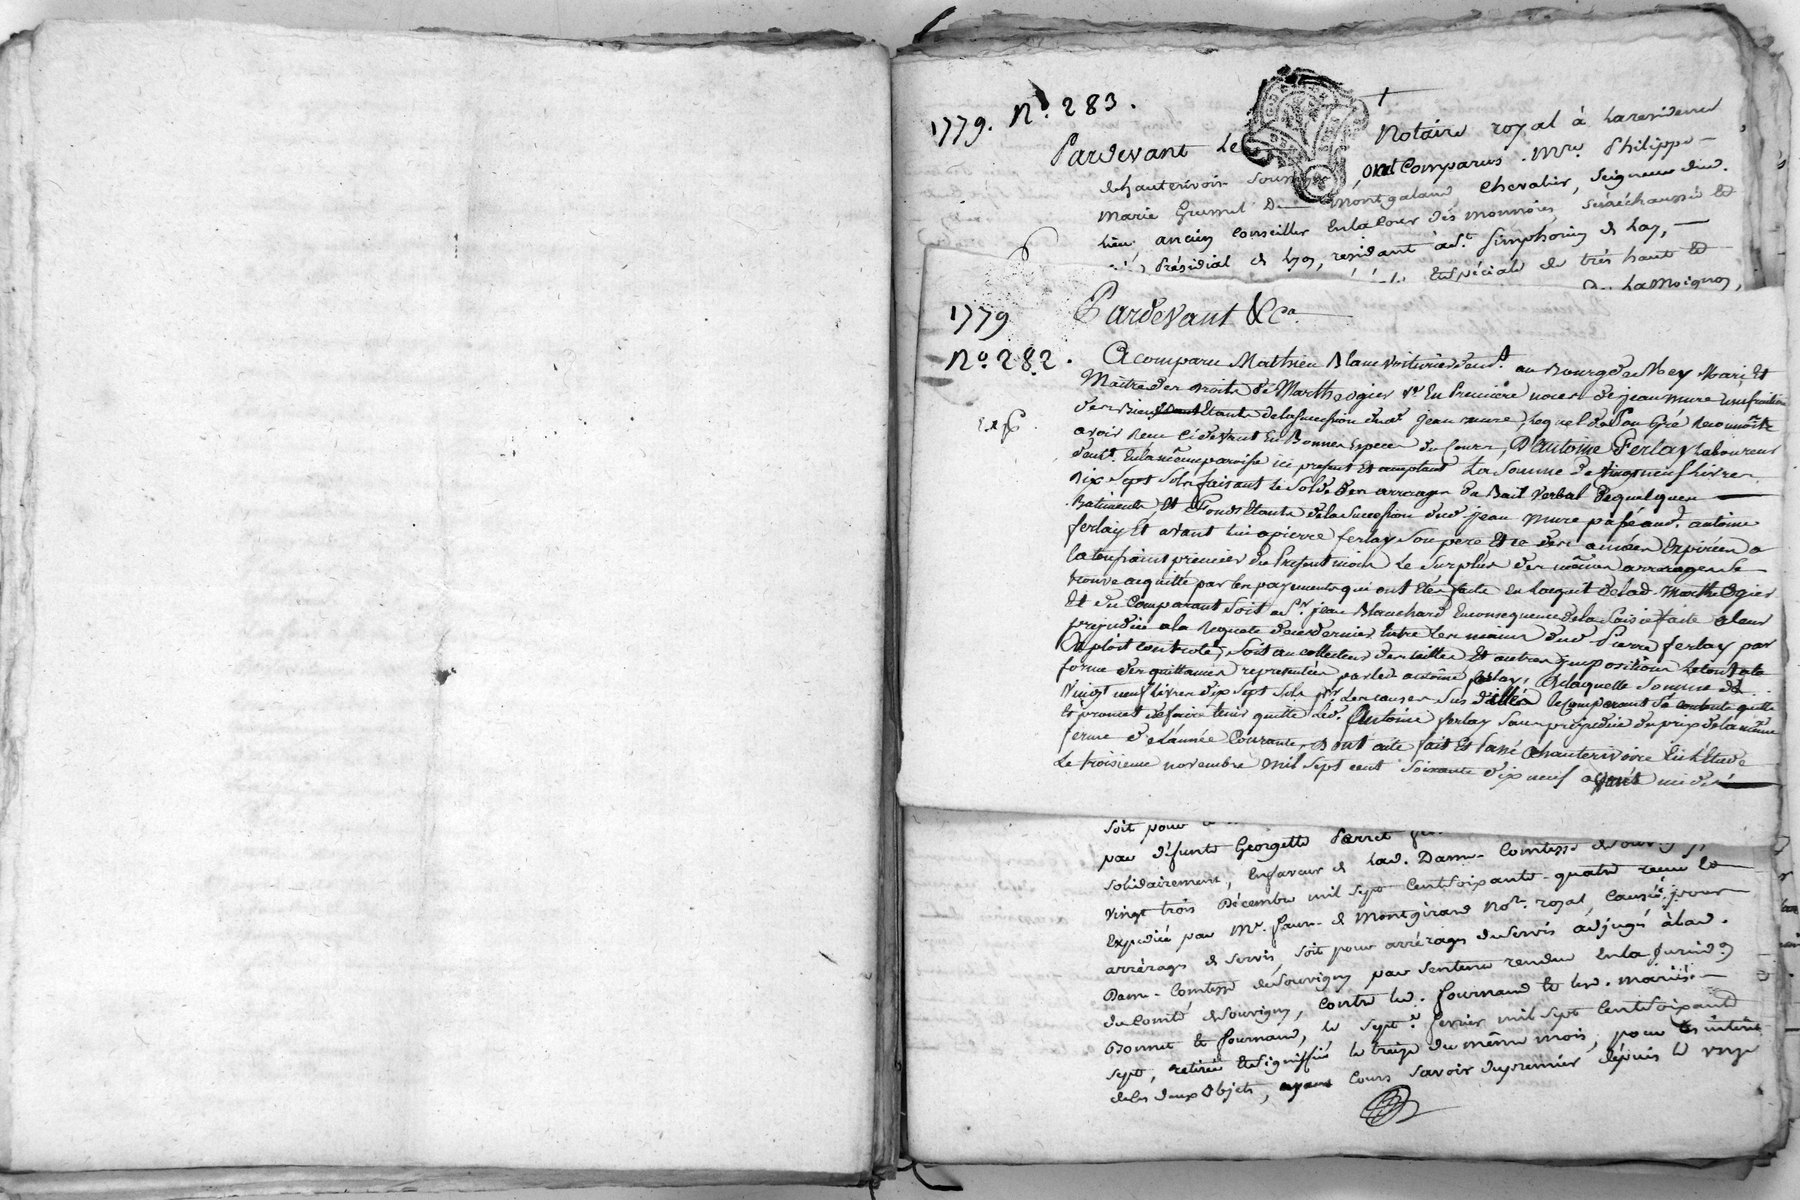 1779. N.º 283.
Pardevant Le Notaire royal à La residence
dhauterivoir soussigné, ont Comparus. Mre. Philippe
marie Grumel De Montgaland Chevalier, Seigneur dud.
Lieu ancien Conseiller En la Cour des monnoies, Sénéchaussée Et
Présidial de Lyon, residant à St. Simphorien de Lay,
Et Spéciale de très haut Et
De LaMoignon,
1779 Pardevant &Ca.
N.º 282.
A comparu Mathieu Blanc voiturier demt. au Bourg de Mari Et
Maitre des droits de Marthe ogier ve. En Premiere noces de jean mure usufruitiere
des Biens Etants de la succession dud. jean mure, Lequel de son Gré Reconnoitre
avoir Reçu Cidevant En Bonnes Especes du Cours, D'Antoine Ferlay Laboureur
demt. En la même paroisse ici present Et acceptant La Somme de vingt neuf Livres
Dix Sept Sols faisant Le Solde des arrerages du Bail verbal de quelques
Batiments, Et Fonds Etants de la Succession dud. jean mure passé aud. antoine
ferlay Et avant lui a pierre ferlay Son pere Et ce des années Expirées a
la toussaint premier du Present mois Le Surplus des mêmes arrerages Se
trouve acquitté par les payements qui ont Etés faits En Lacquit de lad. Marthe Ogier
Et du Comparant Soit a Sr. jean Blanchard En consequence de la Saisie faite a leur
prejudice a la Requete de ce dernier Entre Les mains dud. Pierre ferlay par
Exploit controlé, Soit au collecteur des tailles Et autres impositions Le tout
forme des quittances representées par led. antoine ferlay, De laquelle Somme de
Vingt neuf Livres dix Sept Sols pr. Les causes Sus d'elles Le Comparant Se contente quitte
Et promet de faire tenir quitte Led. Antoine ferlay Sans prejudice du prix de la même
ferme de L'année Courante, Dont acte fait Et Passé A hauterivoire En L'Etude
Le troisieme novembre mil Sept cent Soixante dix neuf après midi
Soit pour
par défunte Georgette Perret
solidairement, En faveur de Lad. Dame Comtesse de Souvigny,
vingt trois Décembre mil Sept Cent Soixante quatre reçue Et
Expediée par Me. faure de Montgirand Nore. royal, Causée pour
arrérages de servis, Soit pour arrérages du Servis adjugés à Lad.
Dame Comtesse de Souvigny par Sentence rendue En la Jurid.on
du Comté de Souvigny, Contre Led. fournand Et Les mariés
Bonnet Et fournand, Le Sept fevrier mil Sept Cent Soixante
Sept, retirée Et Signiffiée Le treize du même mois, pour Les intérêts
de les deux Objets, ayant Cours Savoir du premier dépuis Le